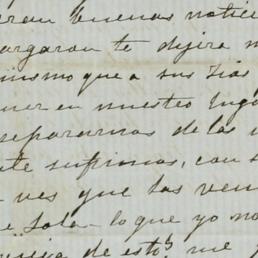 eran buenas notici
argaran te dijera m
mismo que a sus Tias
ner en nuestro luga
separarnos de las
te sufrimos, con s
ves que las ven
e Lola lo que yo no
de esto? me